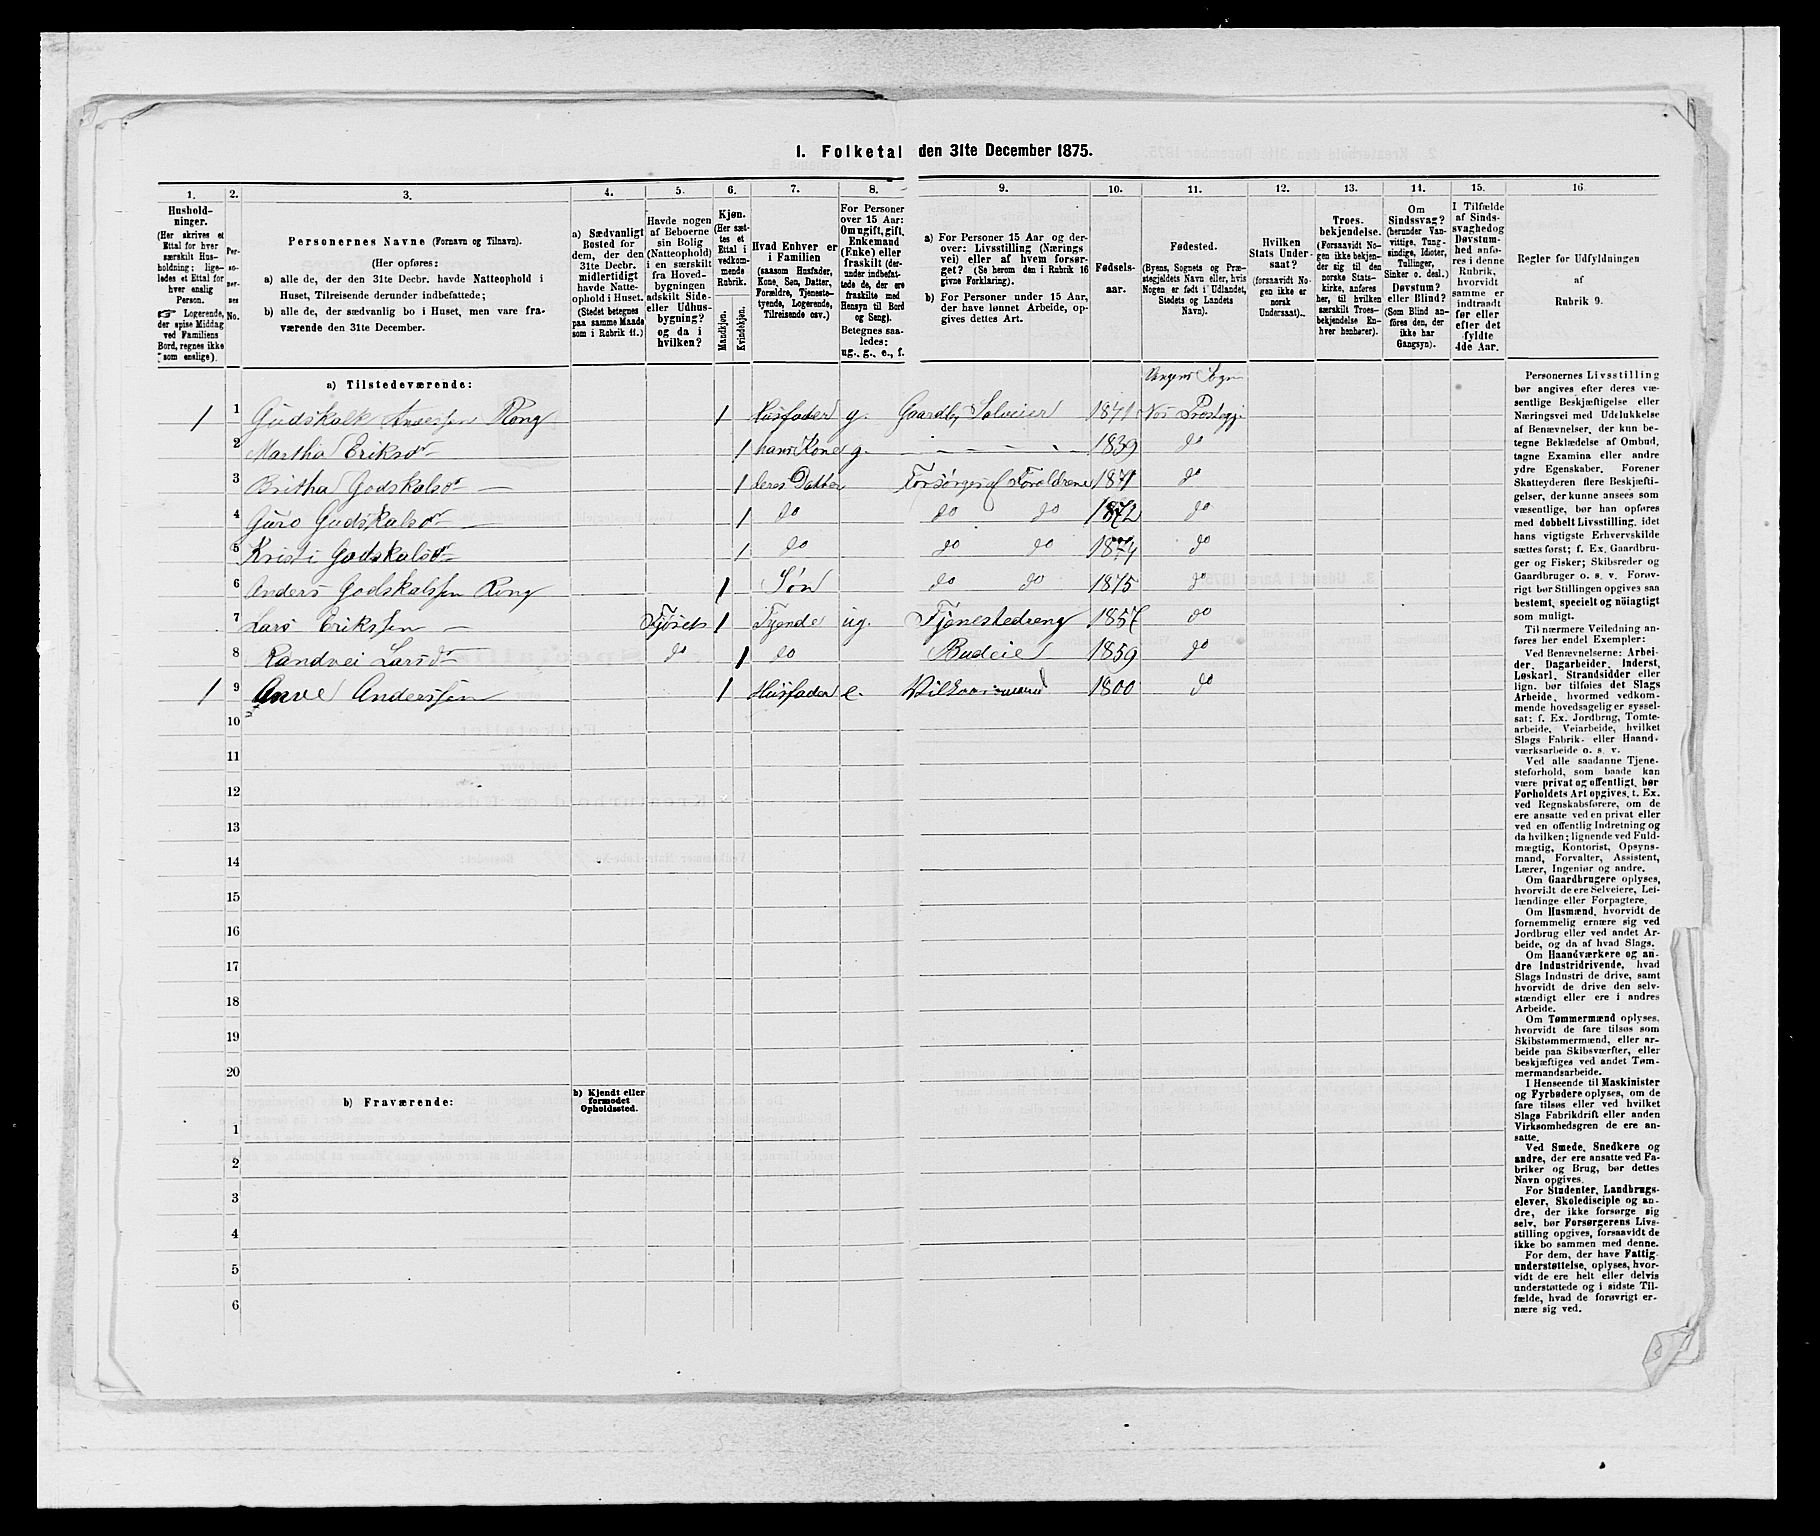 1. Folketal den 31te December 1875.
1. 2. 3. 4. 5. 6. 7. 8. 9. 10. 11. 12. 13. 14. 15. 16
Hushold-
ninger.
(Her skrives et
Ettal for hver
særskilt Hus-
holdning; lige-
ledes et Ettal for
hver enslig
Person.
☞ Logerende,
der spise Middag
ved Familiens
Bord, regnes ikke
som enslige).
Per-
so-
ner-
nes
No.
Personernes Navne (Fornavn og Tilnavn).
(Her opføres:
a) alle de, der den 31te Decbr. havde Natteophold i
Huset, Tilreisende derunder indbefattede;
b) alle de, der sædvanlig bo i Huset, men vare fra-
værende den 31te December.
a) Sædvanligt
Bosted for
dem, der den
31te Decbr.
midlertidigt
havde Natte-
ophold i Huset.
(Stedet betegnes
paa samme Maade
som i Rubrik 11.)
Havde nogen
af Beboerne
sin Bolig
(Natteophold)
i en særskilt
fra Hoved-
bygningen
adskilt Side-
eller Udhus-
bygning?
og da i
hvilken?
Kjøn.
(Her sæt-
tes et
Ettal i
vedkom-
mende
Rubrik.
Mandkjøn.
Kvindekjøn.
Hvad Enhver er
i Familien
(saasom Husfader,
Kone, Søn, Datter,
Forældre, Tjeneste-
tyende, Logerende,
Tilreisende osv.)
For Personer
over 15 Aar:
Om ugift, gift,
Enkemand
(Enke) eller
fraskilt (der-
under indbefat-
tede de, der ere
fraskilte med
Hensyn til Bord
og Seng).
Betegnes saa-
ledes:
ug., g., e., f.
a) For Personer 15 Aar og der-
over: Livsstilling (Nærings
vei) eller af hvem forsør-
get? (Se herom den i Rubrik 16
givne Forklaring).
b) For Personer under 15 Aar,
der have lønnet Arbeide, op-
gives dettes Art.
Fødsels-
aar.
Fødested.
(Byens, Sognets og Præ-
stegjeldets Navn eller, hvis
Nogen er født i Udlandet,
Stedets og Landets
Navn).
Hvilken
Stats Under-
saat?
(forsaavidt No-
gen ikke er
norsk
Undersaat).
Troes-
bekjendelse.
(Forsaavidt No-
gen ikke bekjen-
der sig til den
norske Stats-
kirke, anføres
her, til hvilken
særskilt Troes-
bekjendelse En-
hver henhører).
Om
Sindssvag?
(herunder Van-
vittige, Tung-
sindige, Idioter,
Tullinger,
Sinker o. desl.)
Døvstum?
eller Blind?
(Som Blind an-
føres den, der
ikke har
Gangsyn).
I Tilfælde
af Sinds-
svaghed og
Døvstum-
hed anfø-
res i denne
Rubrik,
hvorvidt
samme er
indtraadt
før eller
efter det
fyldte
4de Aar.
Regler for Udfyldningen
af
Rubrik 9.
a) Tilstedeværende: Vangens Sogn
1 1 Gudskalk Anderssen Rong 1 Husfader g. Gaardb. Selveier 1841 Vos Prestegj
2 Martha Eriksdr 1 hans Kone g. — — — — 1839 do
3 Britha Godskalsdr — 1 deres Datter Forsørges af Forældrene 1871 do
4 Guro Gudskalsdr — 1 do do do 1872 do
5 Kristi Godskalsdr — 1 do do do 1874 do
6 Anders Godskalssen Rong 1 Søn do do 1875 do
7 Lars Erikssen — Fjøset 1 Tjende ug. Tjenestedreng 1857 do
8 Randvei Larsdr do 1 do Budeie 1859 do
1 9 Anve Anderssen 1 Husfader e. Vilkaarsmand 1800 do
10
11
12
13
14
15
16
17
18
19
20
b) Fraværende:
b) Kjendt eller
formodet
Opholdssted.
1
2
3
4
5
6
Personernes Livsstilling
bør angives efter deres væ-
sentlige Beskjæftigelse eller
Næringsvei med Udelukkelse
af Benævnelser, der kun be-
tegne Beklædelse af Ombud,
tagne Examina eller andre
ydre Egenskaber. Forener
Skatteyderen flere Beskjæfti-
gelser, der kunne ansees som
væsentlige, bør han opføres
med dobbelt Livsstilling, idet
hans vigtigste Erhvervskilde
sættes først; f. Ex. Gaardbru-
ger og Fisker; Skibsreder og
Gaardbruger o. s. v. Forøv-
rigt bør Stillingen opgives saa
bestemt, specielt og nøiagtigt
som muligt.
Til nærmere Veiledning an-
føres her endel Exempler:
Ved Benævnelserne: Arbei-
der, Dagarbeider, Inderst,
Løskarl, Strandsidder eller
lign. bør tilføies det Slags
Arbeide, hvormed vedkom-
mende hovedsagelig er syssel-
sat; f. Ex. Jordbrug, Tomte-
arbeide, Veiarbeide, hvilket
Slags Fabrik- eller Haand-
værksarbeide o. s. v.
Ved alle saadanne Tjene-
steforhold, som baade kan
være privat og offentligt, bør
Forholdets Art opgives, t. Ex.
ved Regnskabsførere, om de
ere ansatte ved en privat eller
ved en offentlig Indretning og
da hvilken; lignende ved Fuld-
mægtig, Kontorist, Opsyns-
mand, Forvalter, Assistent,
Lærer, Ingeniør og andre.
Om Gaardbrugere oplyses,
hvorvidt de ere Selveiere, Lei-
lændinge eller Forpagtere.
Om Husmænd, hvorvidt de
fornemmelig ernære sig ved
Jordbrug eller ved andet Ar-
beide, og da af hvad Slags.
Om Haandværkere og an-
dre Industridrivende, hvad
Slags Industri de drive, samt
hvorvidt de drive den selv-
stændigt eller ere i andres
Arbeide.
Om Tømmermænd oplyses,
hvorvidt de fare tilsøs som
Skibstømmermænd, eller ar-
beide paa Skibsværfter, eller
beskjæftiges ved andet Tøm-
mermandsarbeide.
I Henseende til Maskinister
og Fyrbødere oplyses, om de
fare tilsøs eller ved hvilket
Slags Fabrikdrift eller anden
Virksomhedsgren de ere an-
satte.
Ved Smede, Snedkere og
andre, der ere ansatte ved Fa-
briker og Brug, bør dettes
Navn opgives.
For Studenter, Landbrugs-
elever, Skoledisciple og an-
dre, der ikke forsørge sig
selv, bør Forsørgerens Livs-
stilling opgives, forsaavidt de
ikke bo sammen med denne.
For dem, der have Fattig-
understøttelse, oplyses, hvor-
vidt de ere helt eller delvis
understøttede og i sidste Til-
fælde, hvad de forøvrigt er-
nære sig ved.